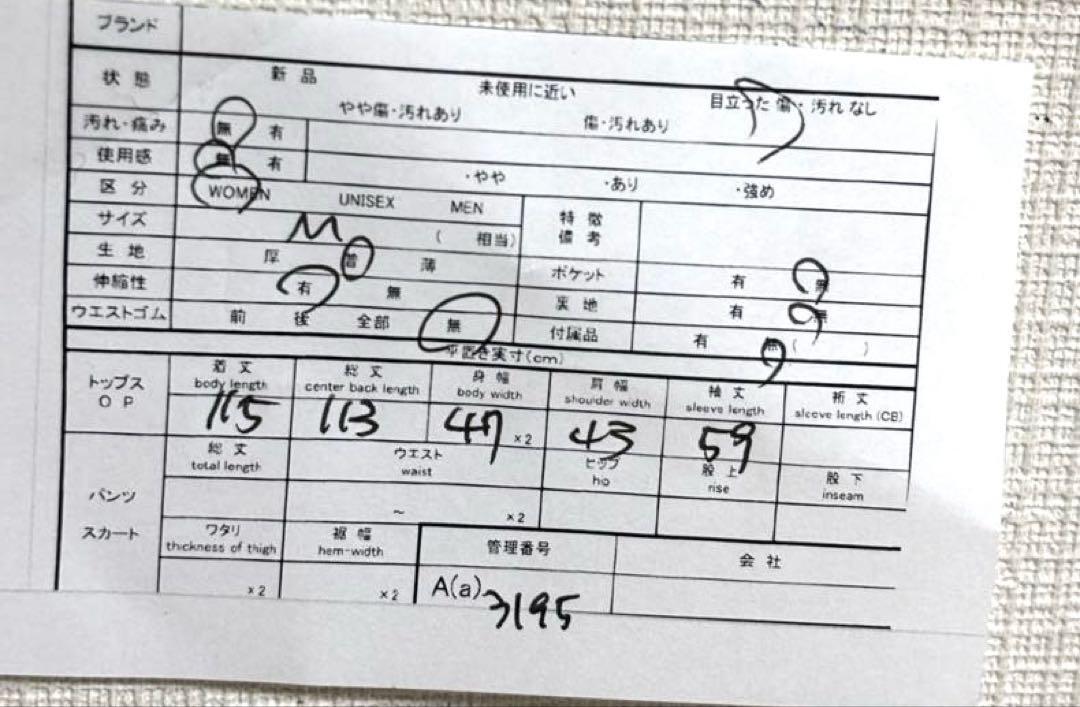 ブランド
状態 新品 未使用に近い 目立った 傷・汚れ なし
やや傷・汚れあり 傷・汚れあり
汚れ・痛み 無 有
使用感 無 有 ・やや ・あり ・強め
区分 WOMEN UNISEX MEN 特徴 備考
サイズ M ( 相当)
生地 厚 普 薄 ポケット 有 無
伸縮性 有 無 裏地 有 無
ウエストゴム 前 後 全部 無 付属品 有 無 ( )
平置き実寸(cm)
トップス OP 着丈 総丈 身幅 肩幅 袖丈 裄丈
body length center back length body width shoulder width sleeve length sleeve length (CB)
115 113 47 ×2 43 59
総丈 ウエスト ヒップ 股上 股下
total length waist hip rise inseam
パンツ ~ ×2
スカート ワタリ 裾幅 管理番号 会社
thickness of thigh hem-width
×2 ×2 A(a) 3195